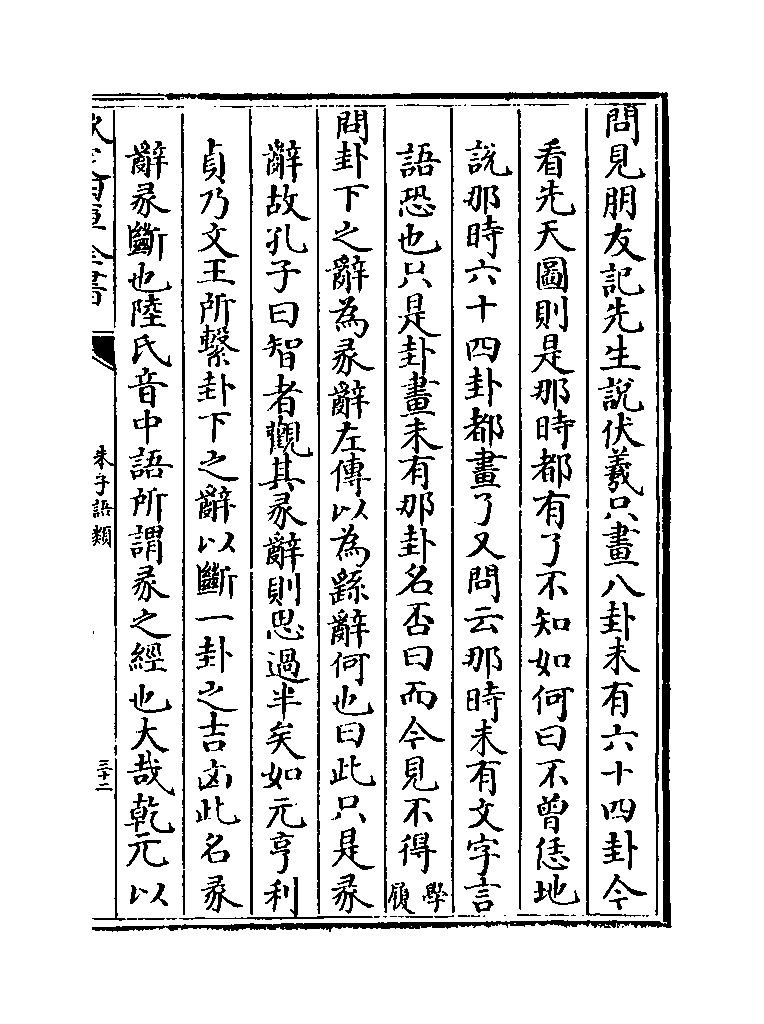 問見朋友記先生說伏羲只畫八卦未有六十四卦今
看先天圖則是那時都有了不知如何曰不曾恁地
說那時六十四卦都畫了又問云那時未有文字言
語恐也只是卦畫未有那卦名否曰而今見不得學履
問卦下之辭為彖辭左傳以為繇辭何也曰此只是彖
辭故孔子曰智者觀其彖辭則思過半矣如元亨利
貞乃文王所繫卦下之辭以斷一卦之吉凶此名彖
辭彖斷也陸氏音中語所謂彖之經也大哉乾元以
朱子語類
三十二